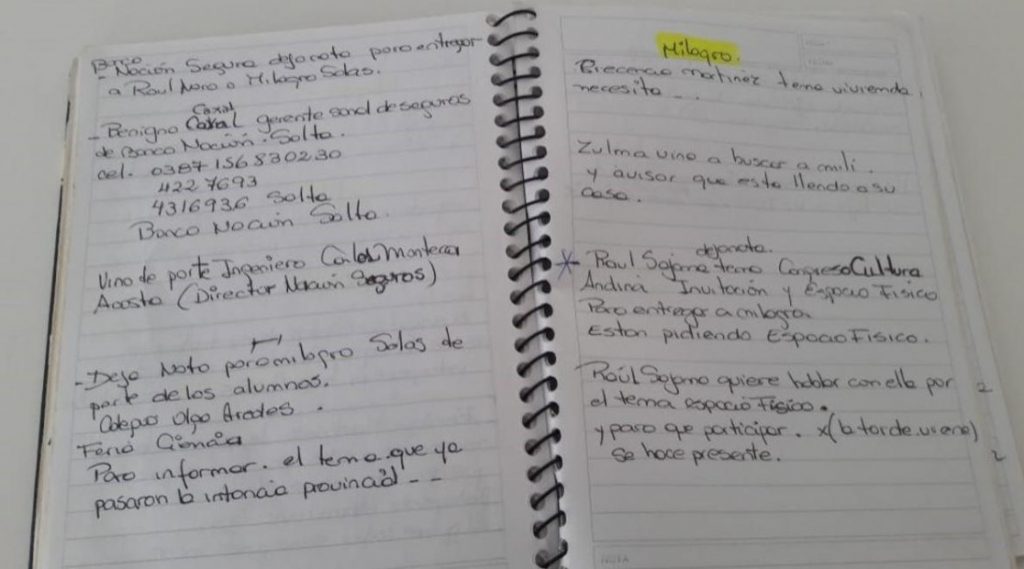 Banco
- Nación Segura dejo nota para entregar
a Raul Noro o Milagro Salas.
Caxal
- Benigno Caxal gerente zonal de seguros
de Banco Nación. Salta.
cel. 0387 156830230
4227693
4316936 Salta
Banco Nación Salta.
Vino de parte Ingeniero Carlos Manterca
Acosta (Director Nación Seguros)
- Dejo Nota para milagro Salas de
parte de los alumnos.
Colegio Olga Arades.
Feria Ciencia
Para informar. el tema que ya
pasaron la intancia provincial - -
Milagro.
martinez tema vivienda.
necesita ...
Zulma vino a buscar a mili.
y avisar que esta llendo a su
casa.
dejo nota.
* Raul Sajama tema Congreso Cultura
Andina Invitación y Espacio Fisico
Para entregar a milagro
Estan pidiendo Espacio Fisico.
Raúl Sajama quiere hablar con ella por
el tema espacio Fisico.
y para que participar. x(la tarde viene)
se hace presente.